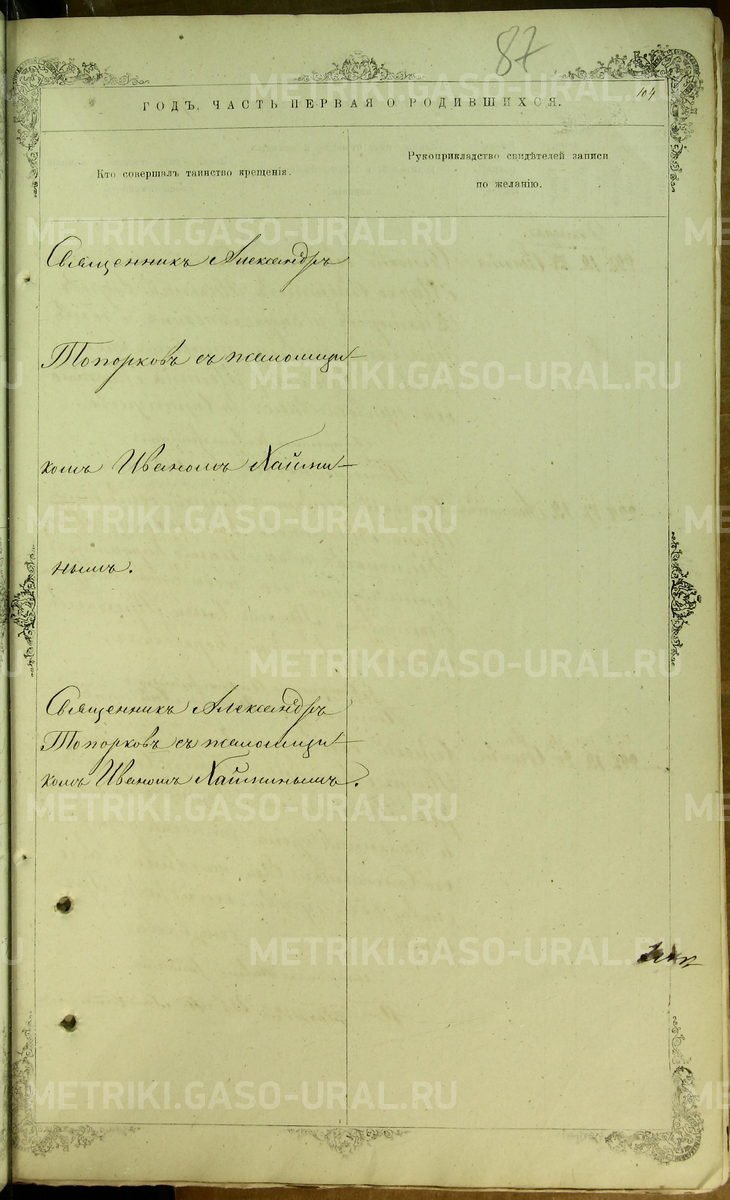 87
104
ГОДЪ, ЧАСТЬ ПЕРВАЯ О РОДИВШИХСЯ.
Кто совершалъ таинство крещенія.
Рукоприкладство свидѣтелей записи
по желанію.
Священникъ Александръ
Топорковъ съ псаломщи-
комъ Иваномъ Хайми-
нымъ.
Священникъ Александръ
Топорковъ съ псаломщи-
комъ Иваномъ Хайминымъ.
METRIKI.GASO-URAL.RU